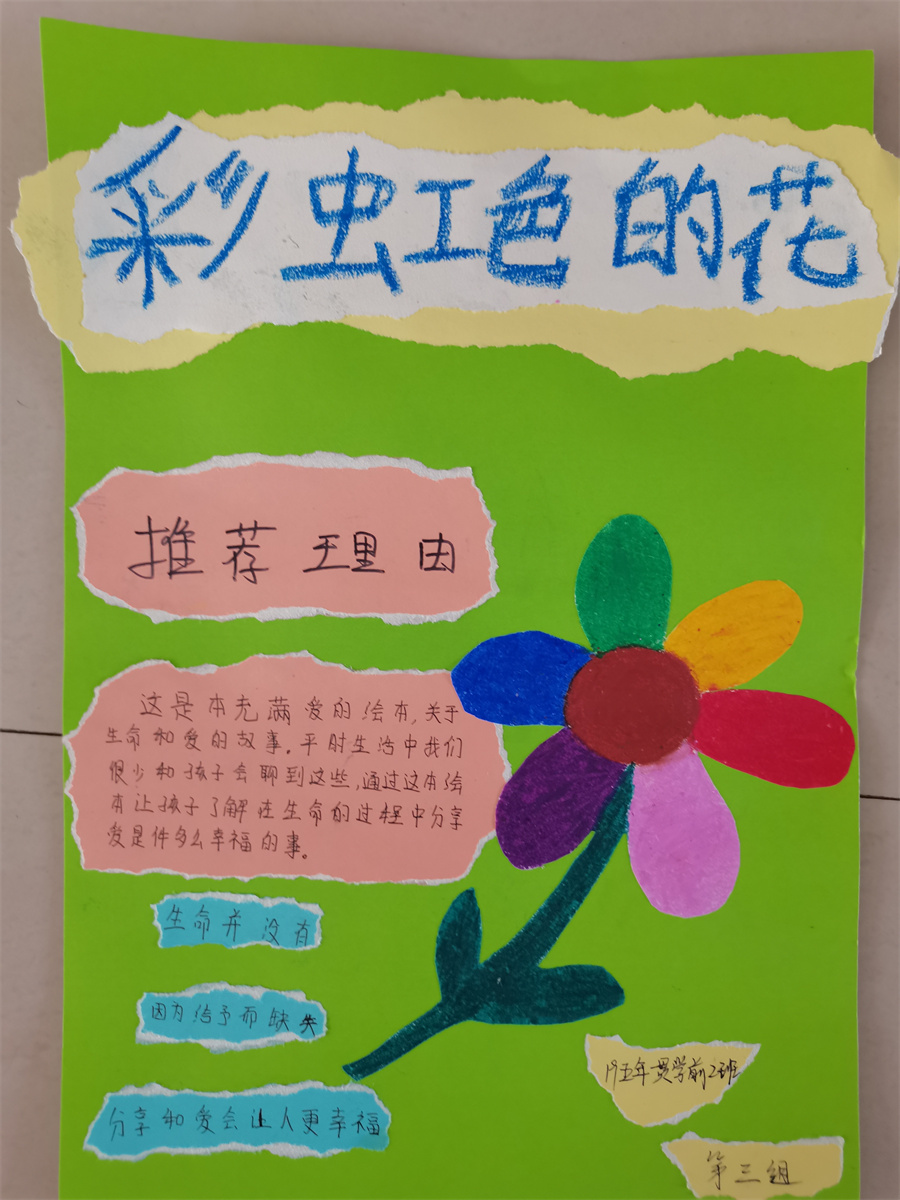 彩虹色的花
推荐理由
这是本充满爱的绘本,关于
生命和爱的故事。平时生活中我们
很少和孩子会聊到这些,通过这本绘
本让孩子了解在生命的过程中分享
爱是件多么幸福的事。
生命并没有
因为给予而缺失
分享和爱会让人更幸福
19五年贯学前2班
第三组